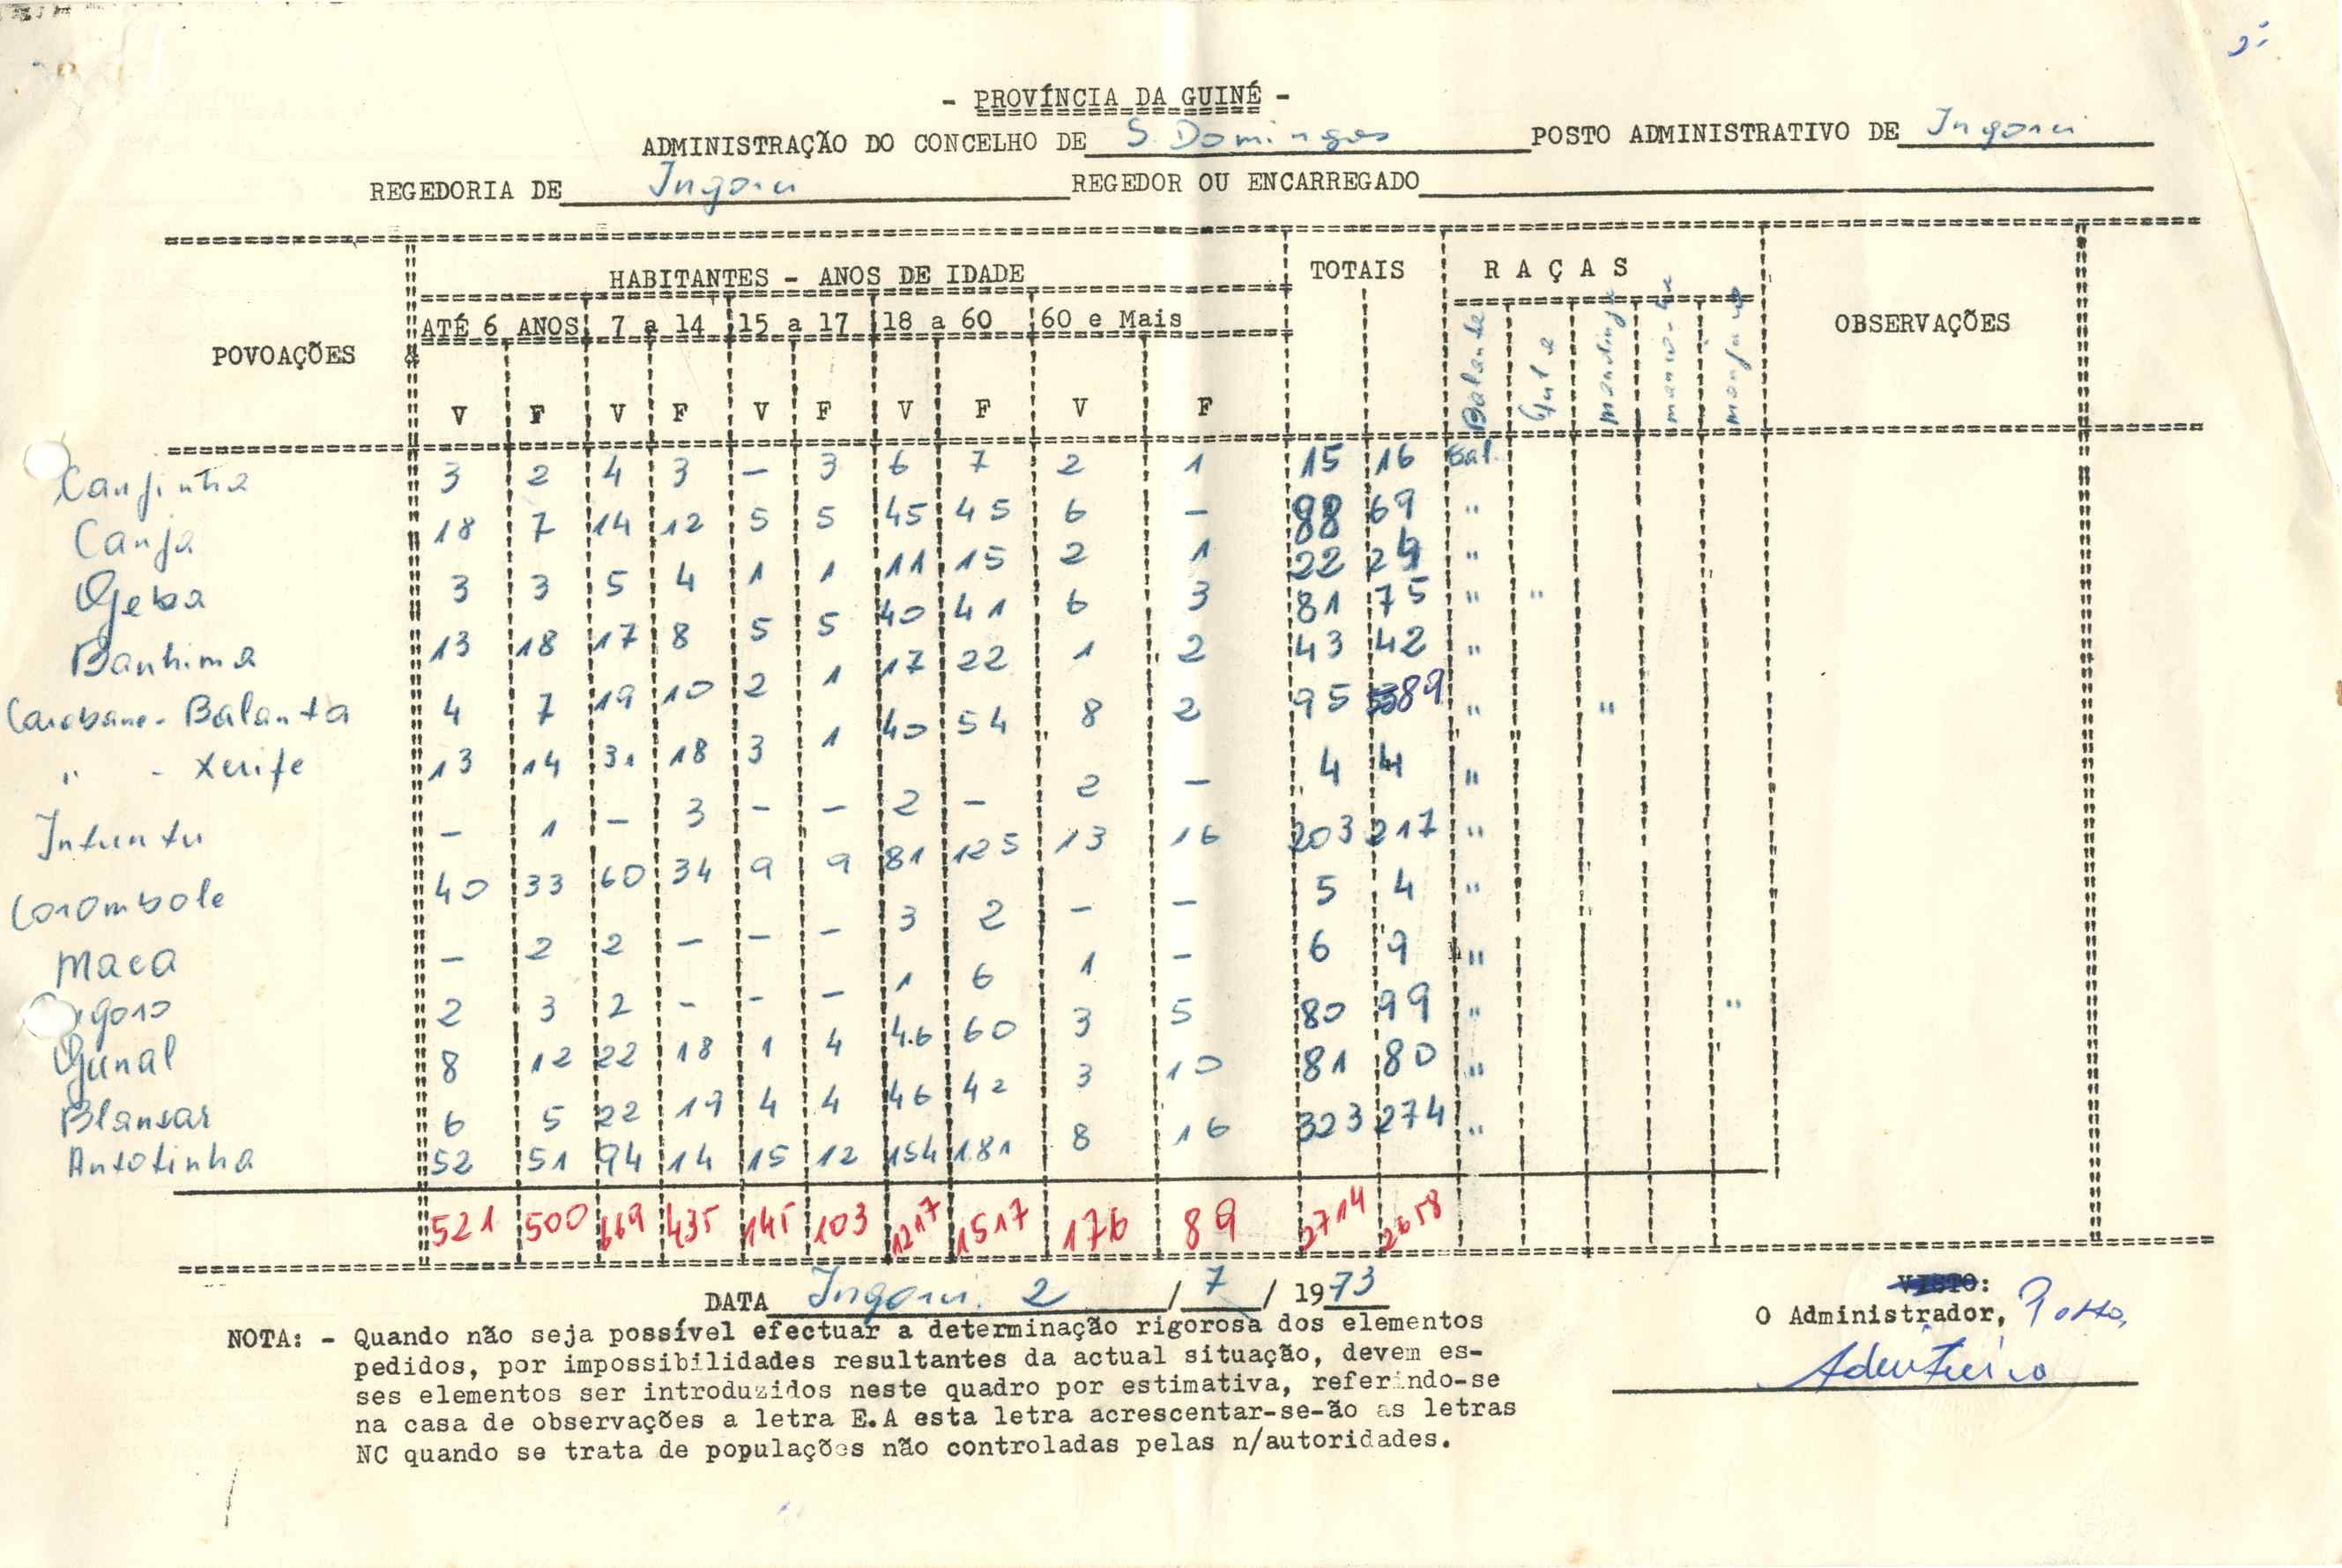 2
- PROVÍNCIA DA GUINÉ -
ADMINISTRAÇÃO DO CONCELHO DE S. Domingos POSTO ADMINISTRATIVO DE Ingoré
REGEDORIA DE Ingoré REGEDOR OU ENCARREGADO
POVOAÇÕES HABITANTES - ANOS DE IDADE TOTAIS RAÇAS OBSERVAÇÕES
ATÉ 6 ANOS 7 a 14 15 a 17 18 a 60 60 e Mais
V F V F V F V F V F Balante mandinga
Canjinha 3 2 4 3 — 3 6 7 2 1 15 16 Bal.
Canja 18 7 14 12 5 5 45 45 6 — 88 69 "
Geba 3 3 5 4 1 1 11 15 2 1 22 24 "
Banhima 13 18 17 8 5 5 40 41 6 3 81 75 " "
Carabane - Balanta 4 7 19 10 2 1 17 22 1 2 43 42 "
" - Xerife 13 14 31 18 3 1 40 54 8 2 95 89 " "
Intuntu — 1 — 3 — — 2 — 2 — 4 4 "
Corombole 40 33 60 34 9 9 81 125 13 16 203 217 "
Maca — 2 2 — — — 3 2 — — 5 4 "
2 3 2 — — — 1 6 1 — 6 9 "
Gunal 8 12 22 18 1 4 46 60 3 5 80 99 " "
Blansar 6 5 22 19 4 4 46 42 3 10 81 80 "
Antotinha 52 51 94 14 15 12 154 181 8 16 323 274 "
521 500 669 435 145 103 1217 1517 176 89 2714 2658
DATA Ingoré. 2 / 7 / 1973
VISTO:
O Administrador, Posto,
NOTA: - Quando não seja possível efectuar a determinação rigorosa dos elementos
pedidos, por impossibilidades resultantes da actual situação, devem es-
ses elementos ser introduzidos neste quadro por estimativa, referindo-se
na casa de observações a letra E.A esta letra acrescentar-se-ão as letras
NC quando se trata de populações não controladas pelas n/autoridades.